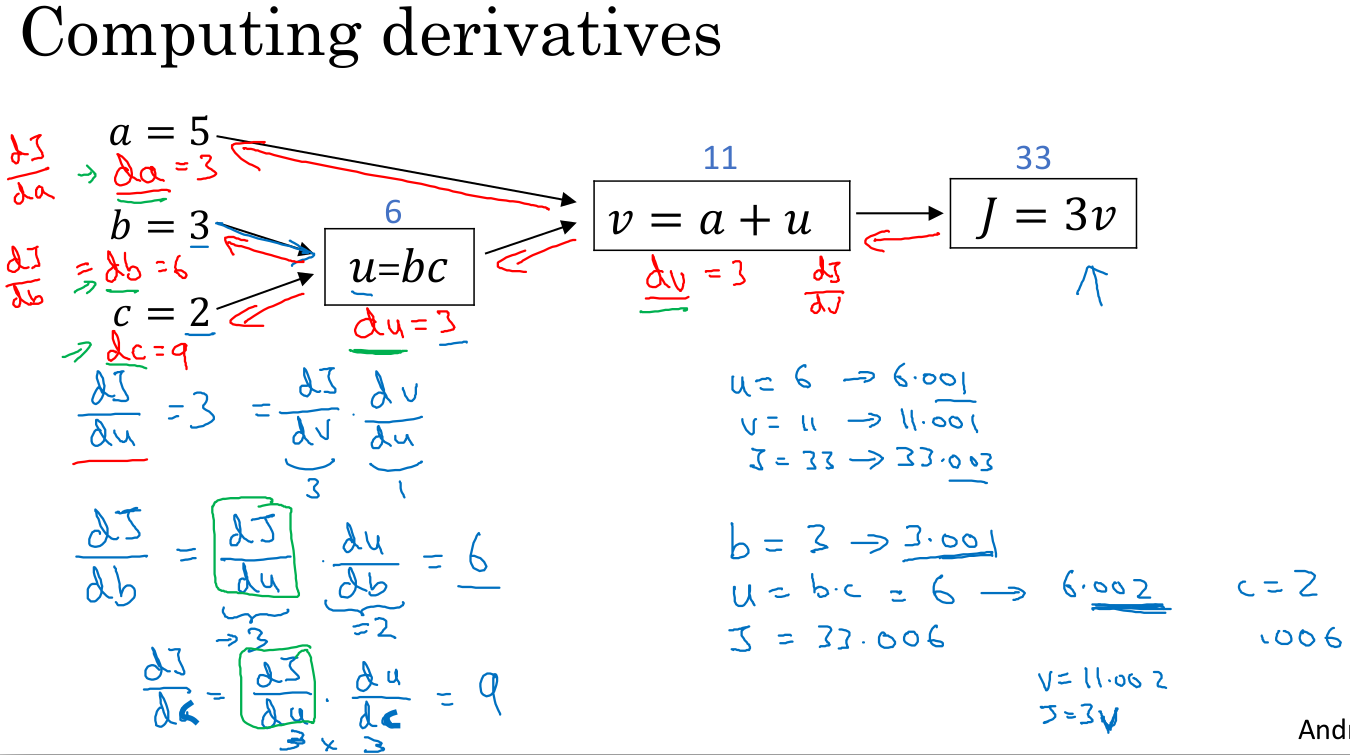 Computing derivatives
a = 5
dJ/da → da = 3
b = 3
dJ/db = db = 6
→
c = 2
→ dc = 9
6
u=bc
du = 3
11
v = a + u
dv = 3
dJ/dv
33
J = 3v
dJ/du = 3 = dJ/dv · dv/du
3 1
dJ/db = dJ/du · du/db = 6
→ 3 = 2
dJ/dc = dJ/du · du/dc = 9
3 × 3
u = 6 → 6.001
v = 11 → 11.001
J = 33 → 33.003
b = 3 → 3.001
u = b·c = 6 → 6.002 c = 2
J = 33.006 .006
v = 11.002
J = 3v